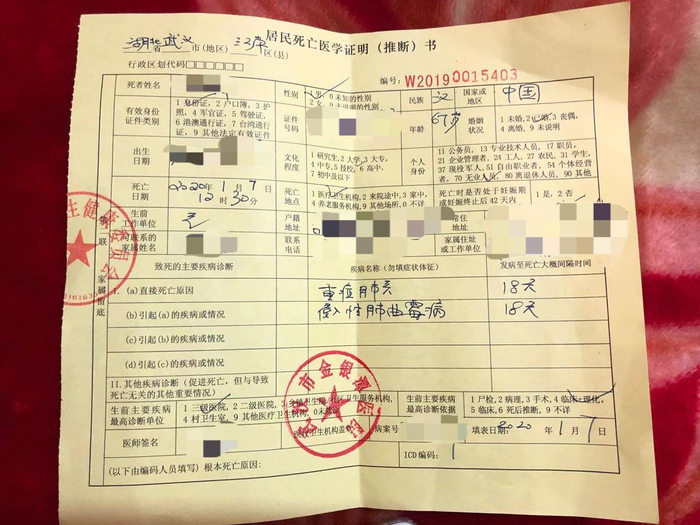 居民死亡医学证明（推断）书
湖北省武汉市(地区)江岸区(县)
行政区划代码□□□□□□
编号：W20190015403
死者姓名
性别
1 男，0 未知的性别
2 女，9 未说明的性别
民族
汉
国家或地区
中国
有效身份证件类别
1 身份证，2 户口簿，3 护照，4 军官证，5 驾驶证，6 港澳通行证，7 台湾通行证，9 其他法定有效证件
证件号码
年龄
67岁
婚姻状况
1 未婚，2 已婚，3 丧偶，4 离婚，9 未说明
出生日期
文化程度
1 研究生，2 大学，3 大专，4 中专，5 技校，6 高中，7 初中及以下
个人身份
11 公务员，13 专业技术人员，17 职员，21 企业管理者，24 工人，27 农民，31 学生，37 现役军人，51 自由职业者，54 个体经营者，70 无业人员，80 离退休人员，90 其他
死亡日期
2020年1月7日
12时30分
死亡地点
1 医疗卫生机构，2 来院途中，3 家中，4 养老服务机构，9 其他场所，0 不详
死亡时是否处于妊娠期或妊娠终止后 42天内
1 是，2 否
生前工作单位
无
户籍地址
常住地址
可联系的家属姓名
联系电话
家属住址或工作单位
第二联
家属留底
致死的主要疾病诊断
疾病名称(勿填症状体征)
发病至死亡大概间隔时间
I. (a)直接死亡原因
重症肺炎
18天
(b)引起(a)的疾病或情况
侵入性肺曲霉病
18天
(c)引起(b)的疾病或情况
(d)引起(c)的疾病或情况
II.其他疾病诊断（促进死亡，但与导致死亡无关的其他重要情况）
生前主要疾病最高诊断单位
1 三级医院，2 二级医院，3 乡镇卫生院/社区卫生服务机构，4 村卫生室，9 其他医疗卫生机构，0 未就诊
生前主要疾病最高诊断依据
1 尸检，2 病理，3 手术，4 临床+理化，5 临床，6 死后推断，9 不详
医师签名
医疗卫生机构盖章
病案号
填表日期：2020年1月7日
(以下由编码人员填写）根本死亡原因：
ICD编码：
市金银潭医院